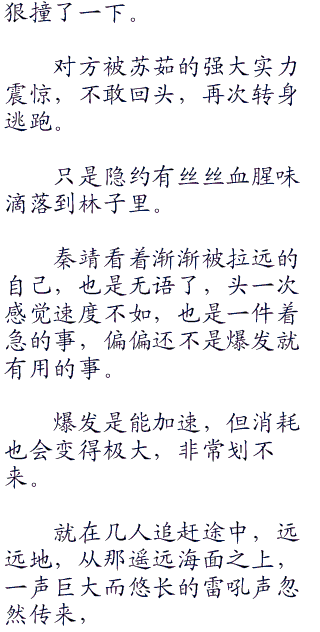 狠撞了一下。
对方被苏茹的强大实力
震惊，不敢回头，再次转身
逃跑。
只是隐约有丝丝血腥味
滴落到林子里。
秦靖看着渐渐被拉远的
自己，也是无语了，头一次
感觉速度不如，也是一件着
急的事，偏偏还不是爆发就
有用的事。
爆发是能加速，但消耗
也会变得极大，非常划不
来。
就在几人追赶途中，远
远地，从那遥远海面之上，
一声巨大而悠长的雷吼声忽
然传来，